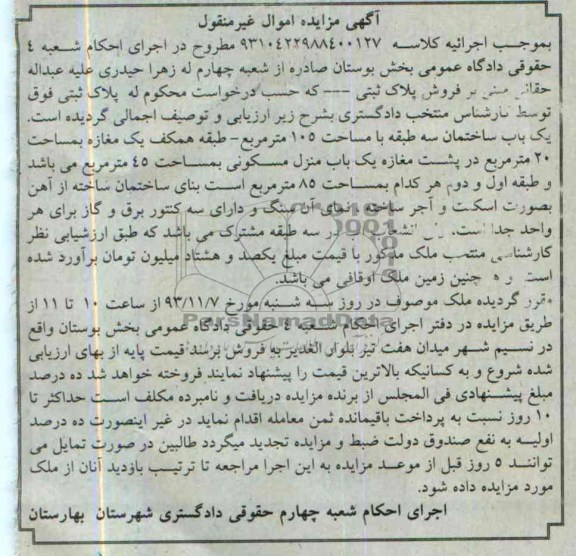 آگهی مزایده اموال غیرمنقول
بموجب اجرائیه کلاسه ۹۳۱۰۴۲۲۹۸۸۴۰۰۱۲۷ مطروح در اجرای احکام شعبه ۴
حقوقی دادگاه عمومی بخش بوستان صادره از شعبه چهارم له زهرا حیدری علیه عبداله
حقانی مبنی بر فروش پلاک ثبتی --- که حسب درخواست محکوم له پلاک ثبتی فوق
توسط کارشناس منتخب دادگستری بشرح زیر ارزیابی و توصیف اجمالی گردیده است.
یک باب ساختمان سه طبقه با مساحت ۱۰۵ مترمربع- طبقه همکف یک مغازه بمساحت
۲۰ مترمربع در پشت مغازه یک باب منزل مسکونی بمساحت ۴۵ مترمربع می باشد
و طبقه اول و دوم هر کدام بمساحت ۸۵ مترمربع است بنای ساختمان ساخته از آهن
بصورت اسکلت و آجر ساخته نمای آن سنگ و دارای سه کنتور برق و گاز برای هر
واحد جدا است. ولی انشعاب در سه طبقه مشترک می باشد که طبق ارزشیابی نظر
کارشناسی منتخب ملک مذکور با قیمت مبلغ یکصد و هشتاد میلیون تومان برآورد شده
است و همچنین زمین ملک اوقافی می باشد.
مقرر گردیده ملک موصوف در روز سه شنبه مورخ ۹۳/۱۱/۷ از ساعت ۱۰ تا ۱۱ از
طریق مزایده در دفتر اجرای احکام شعبه ۴ حقوقی دادگاه عمومی بخش بوستان واقع
در نسیم شهر میدان هفت تیر بلوار الغدیر به فروش برسد قیمت پایه از بهای ارزیابی
شده شروع و به کسانیکه بالاترین قیمت را پیشنهاد نمایند فروخته خواهد شد ده درصد
مبلغ پیشنهادی فی المجلس از برنده مزایده دریافت و نامبرده مکلف است حداکثر تا
۱۰ روز نسبت به پرداخت باقیمانده ثمن معامله اقدام نماید در غیر اینصورت ده درصد
اولیه به نفع صندوق دولت ضبط و مزایده تجدید میگردد طالبین در صورت تمایل می
توانند ۵ روز قبل از موعد مزایده به این اجرا مراجعه تا ترتیب بازدید آنان از ملک
مورد مزایده داده شود.
اجرای احکام شعبه چهارم حقوقی دادگستری شهرستان بهارستان
ParsNamadData